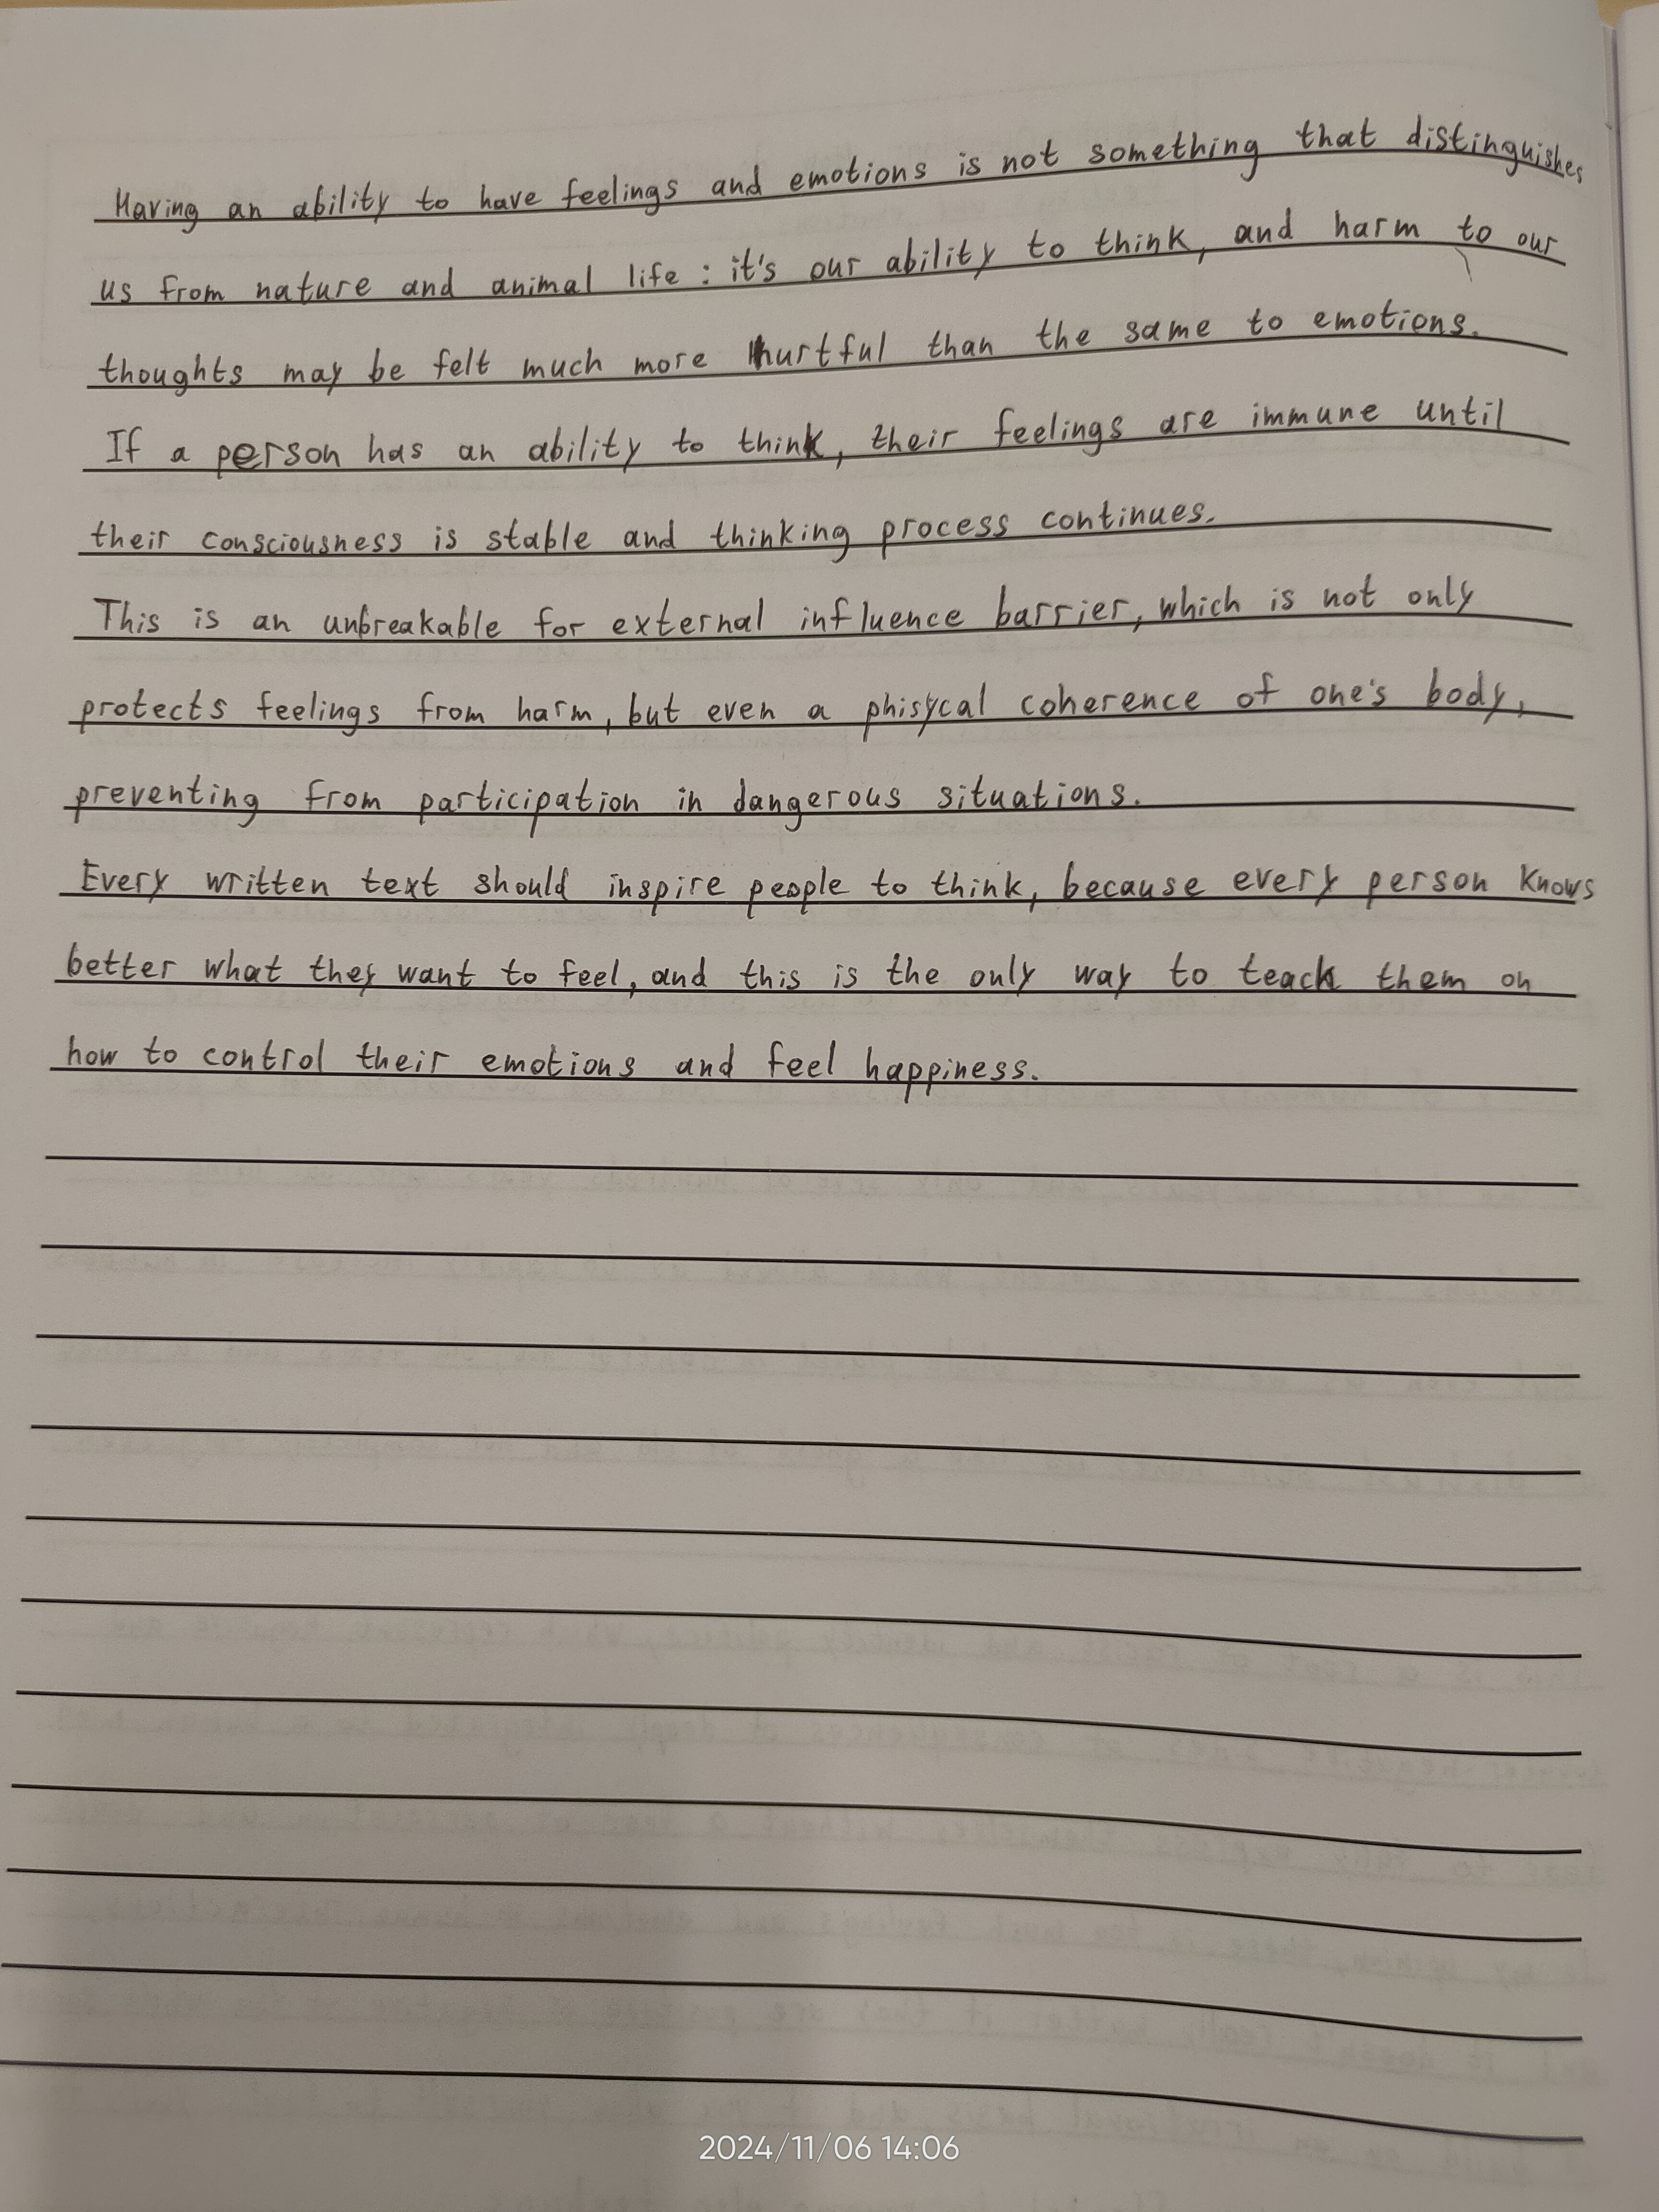 Having an ability to have feelings and emotions is not something that distinguishes
us from nature and animal life : it's our ability to think, and harm to our
thoughts may be felt much more hurtful than the same to emotions.
If a person has an ability to think, their feelings are immune until
their consciousness is stable and thinking process continues.
This is an unbreakable for external influence barrier, which is not only
protects feelings from harm, but even a phisycal coherence of one's body,
preventing from participation in dangerous situations.
Every written text should inspire people to think, because every person knows
better what they want to feel, and this is the only way to teach them on
how to control their emotions and feel happiness.
2024/11/06 14:06